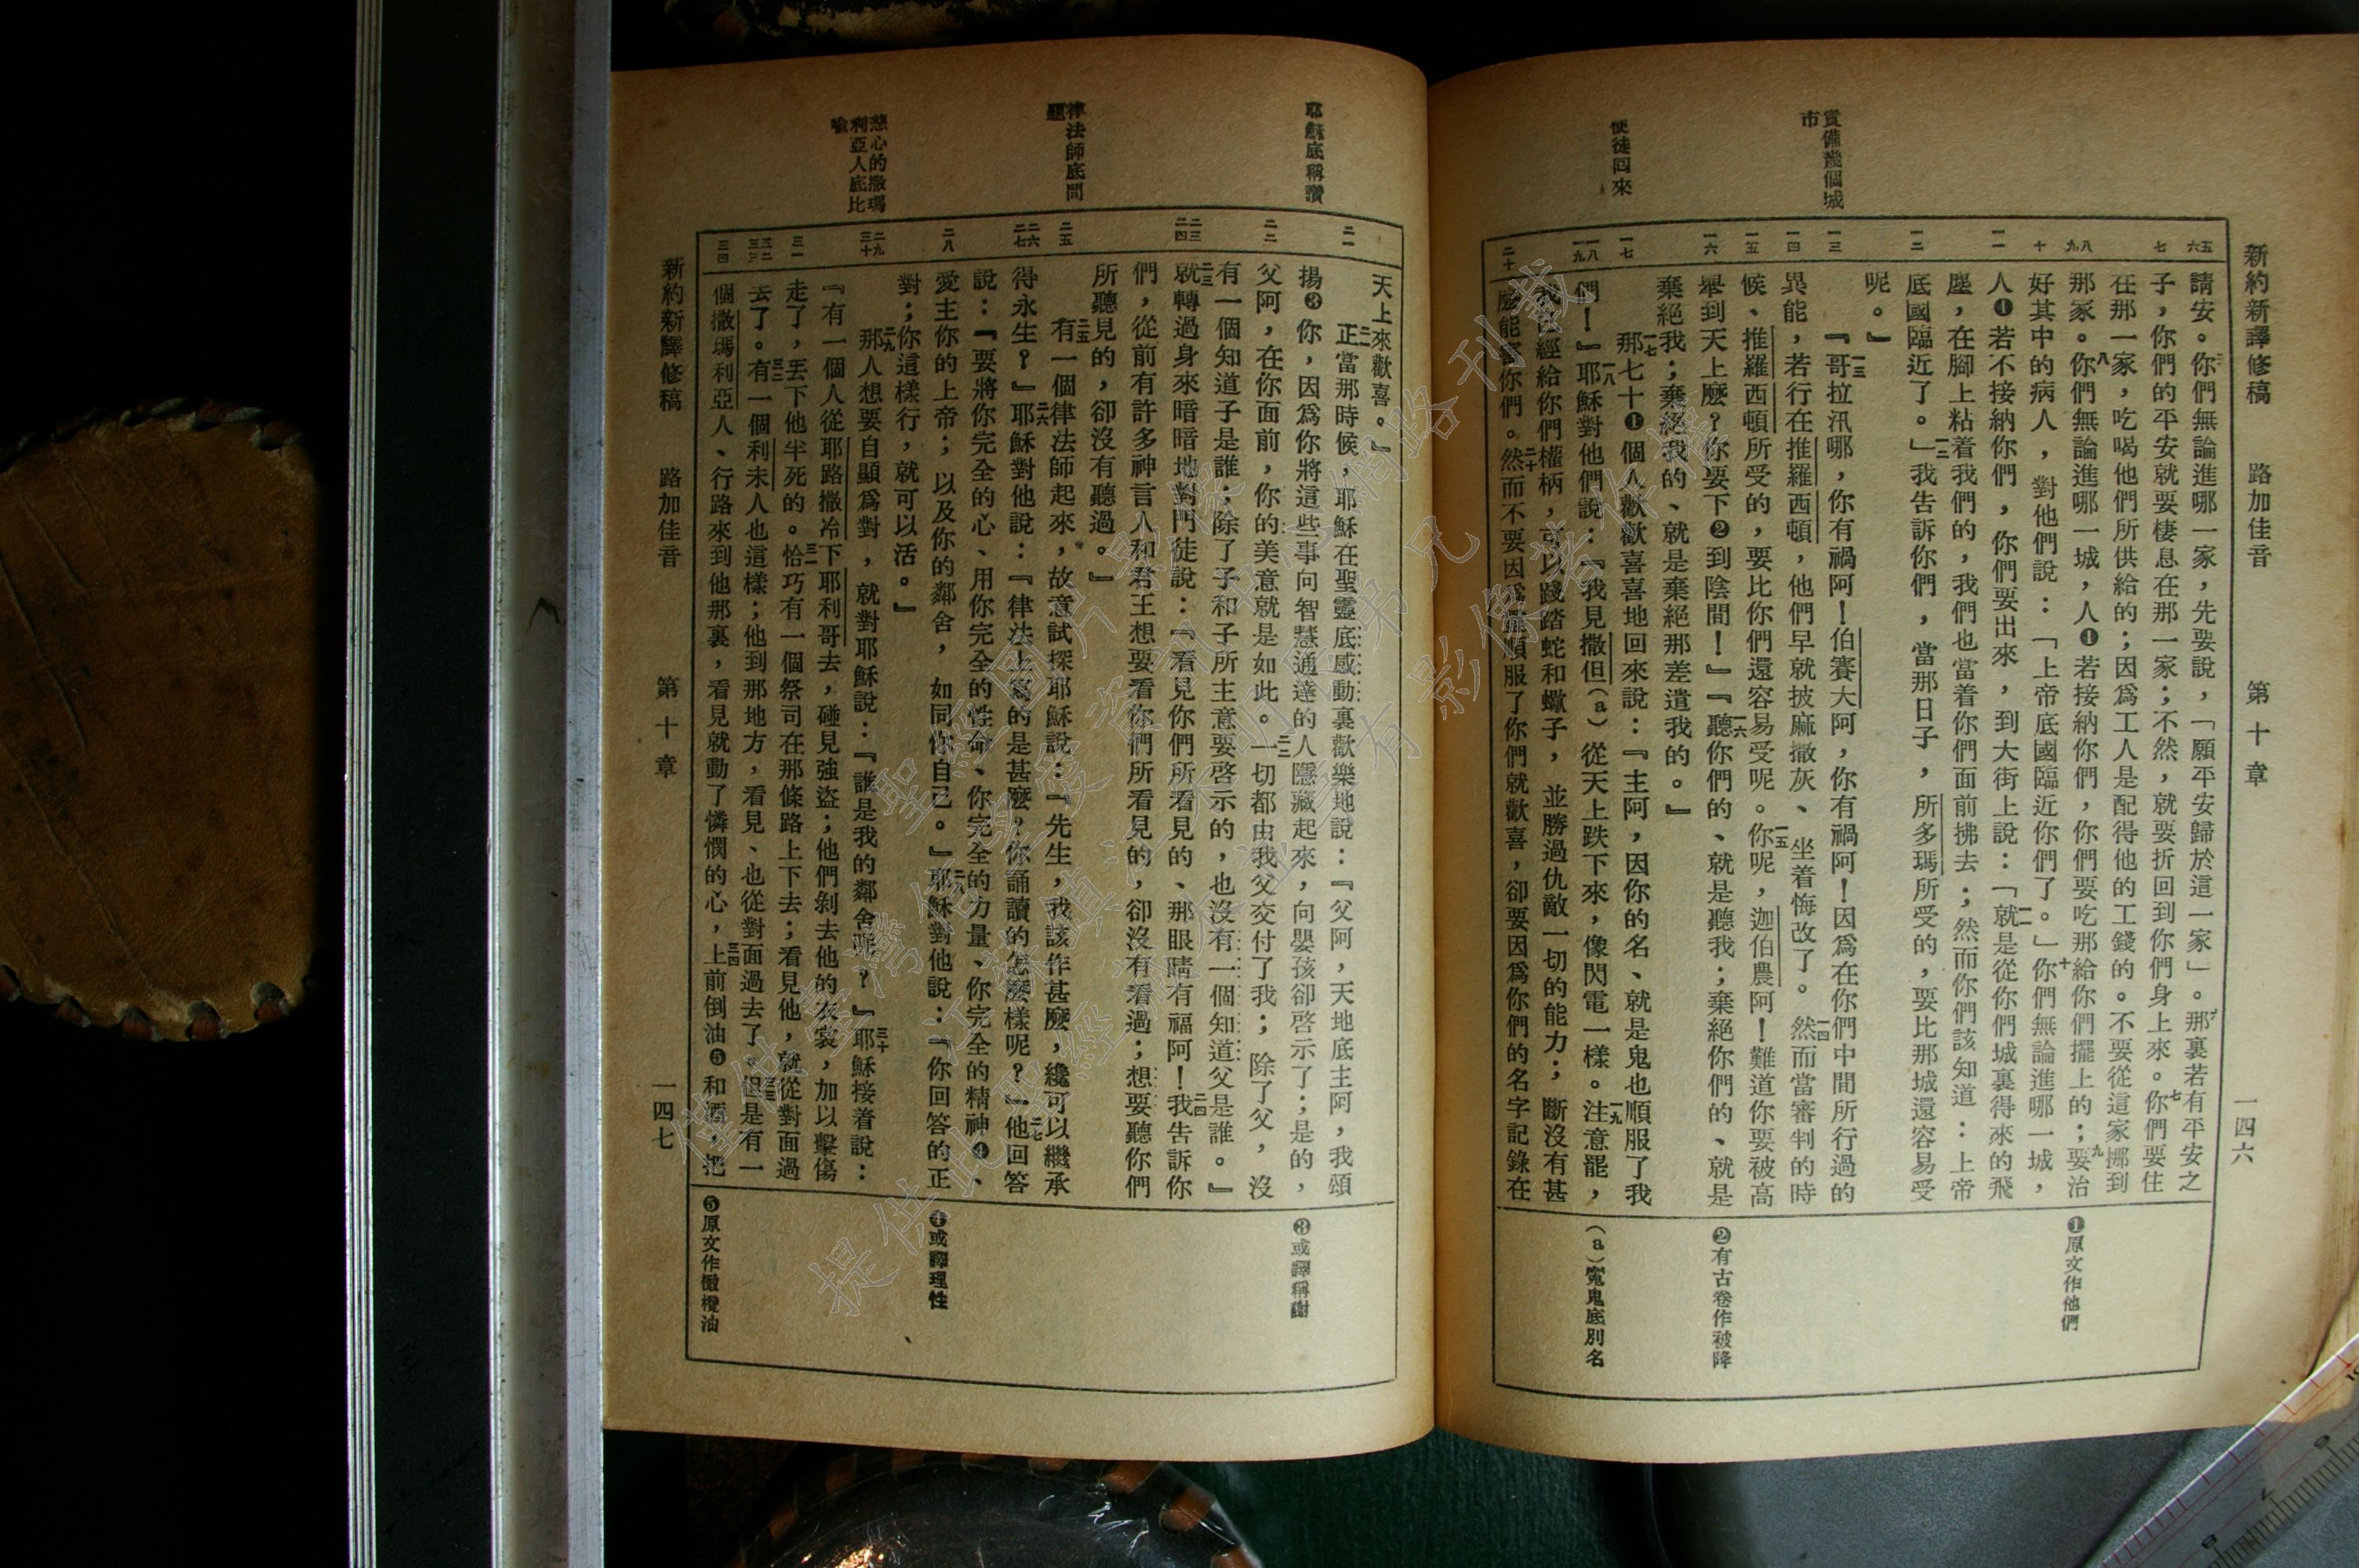 新約新譯修稿　路加佳音　第十章　一四六
責備幾個城市
使徒回來
五 六 七 八 九 十 一一 一二 一三 一四 一五 一六 一七 一八 一九 二十
請安。你們無論進哪一家，先要說，「願平安歸於這一家」。六那裏若有平安之
子，你們的平安就要棲息在那一家；不然，就要折回到你們身上來。七你們要住
在那一家，吃喝他們所供給的；因爲工人是配得他的工錢的。不要從這家挪到
那家。八你們無論進哪一城，人❶若接納你們，你們要吃那給你們擺上的；九要治
好其中的病人，對他們說：「上帝底國臨近你們了。」十你們無論進哪一城，
人❶若不接納你們，你們要出來，到大街上說：一一「就是從你們城裏得來的飛
塵，在腳上粘着我們的，我們也當着你們面前拂去；然而你們該知道：上帝
底國臨近了。」一二我告訴你們，當那日子，所多瑪所受的，要比那城還容易受
呢。』
一三『哥拉汛哪，你有禍阿！伯賽大阿，你有禍阿！因爲在你們中間所行過的
異能，若行在推羅西頓，他們早就披麻撒灰、坐着悔改了。一四然而當審判的時
候、推羅西頓所受的，要比你們還容易受呢。一五你呢，迦伯農阿！難道你要被高
舉到天上麼？你要下❷到陰間！』一六『聽你們的、就是聽我；棄絕你們的、就是
棄絕我；棄絕我的、就是棄絕那差遣我的。』
一七那七十❶個人歡歡喜喜地回來說：『主阿，因你的名、就是鬼也順服了我
們！』一八耶穌對他們說：『我見撒但(a)從天上跌下來，像閃電一樣。一九注意罷，
我已經給你們權柄，可以踐踏蛇和蠍子，並勝過仇敵一切的能力；斷沒有甚
麼能害你們。二十然而不要因爲靈順服了你們就歡喜，卻要因爲你們的名字記錄在
❶原文作他們
❷有古卷作被降
(a)寃鬼底別名
耶穌底稱讚
律法師底問題
慈心的撒瑪利亞人底比喻
二一 二二 二三 二四 二五 二六 二七 二八 二九 三十 三一 三二 三三 三四
天上來歡喜。』
二一正當那時候，耶穌在聖靈底感動裏歡樂地說：『父阿，天地底主阿，我頌
揚❸你，因爲你將這些事向智慧通達的人隱藏起來，向嬰孩卻啓示了；是的，
父阿，在你面前，你的美意就是如此。二二一切都由我父交付了我；除了父，沒
有一個知道子是誰；除了子和子所主意要啓示的，也沒有一個知道父是誰。』
二三就轉過身來暗暗地對門徒說：『看見你們所看見的、那眼睛有福阿！二四我告訴你
們，從前有許多神言人和君王想要看你們所看見的，卻沒有看過；想要聽你們
所聽見的，卻沒有聽過。』
二五有一個律法師起來，故意試探耶穌說：『先生，我該作甚麼，纔可以繼承
得永生？』二六耶穌對他說：『律法上寫的是甚麼？你誦讀的怎麼樣呢？』二七他回答
說：『要將你完全的心、用你完全的性命、你完全的力量、你完全的精神❹、
愛主你的上帝；以及你的鄰舍，如同你自己。』二八耶穌對他說：『你回答的正
對；你這樣行，就可以活。』
二九那人想要自顯爲對，就對耶穌說：『誰是我的鄰舍呢？』三十耶穌接着說：
『有一個人從耶路撒冷下耶利哥去，碰見強盜；他們剝去他的衣裳，加以擊傷
走了，丟下他半死的。三一恰巧有一個祭司在那條路上下去；看見他，就從對面過
去了。三二有一個利未人也這樣；他到那地方，看見、也從對面過去了。三三但是有一
個撒瑪利亞人、行路來到他那裏，看見就動了憐憫的心，三四上前倒油❺和酒，把
❸或譯稱謝
❹或譯理性
❺原文作橄欖油
新約新譯修稿　路加佳音　第十章　一四七